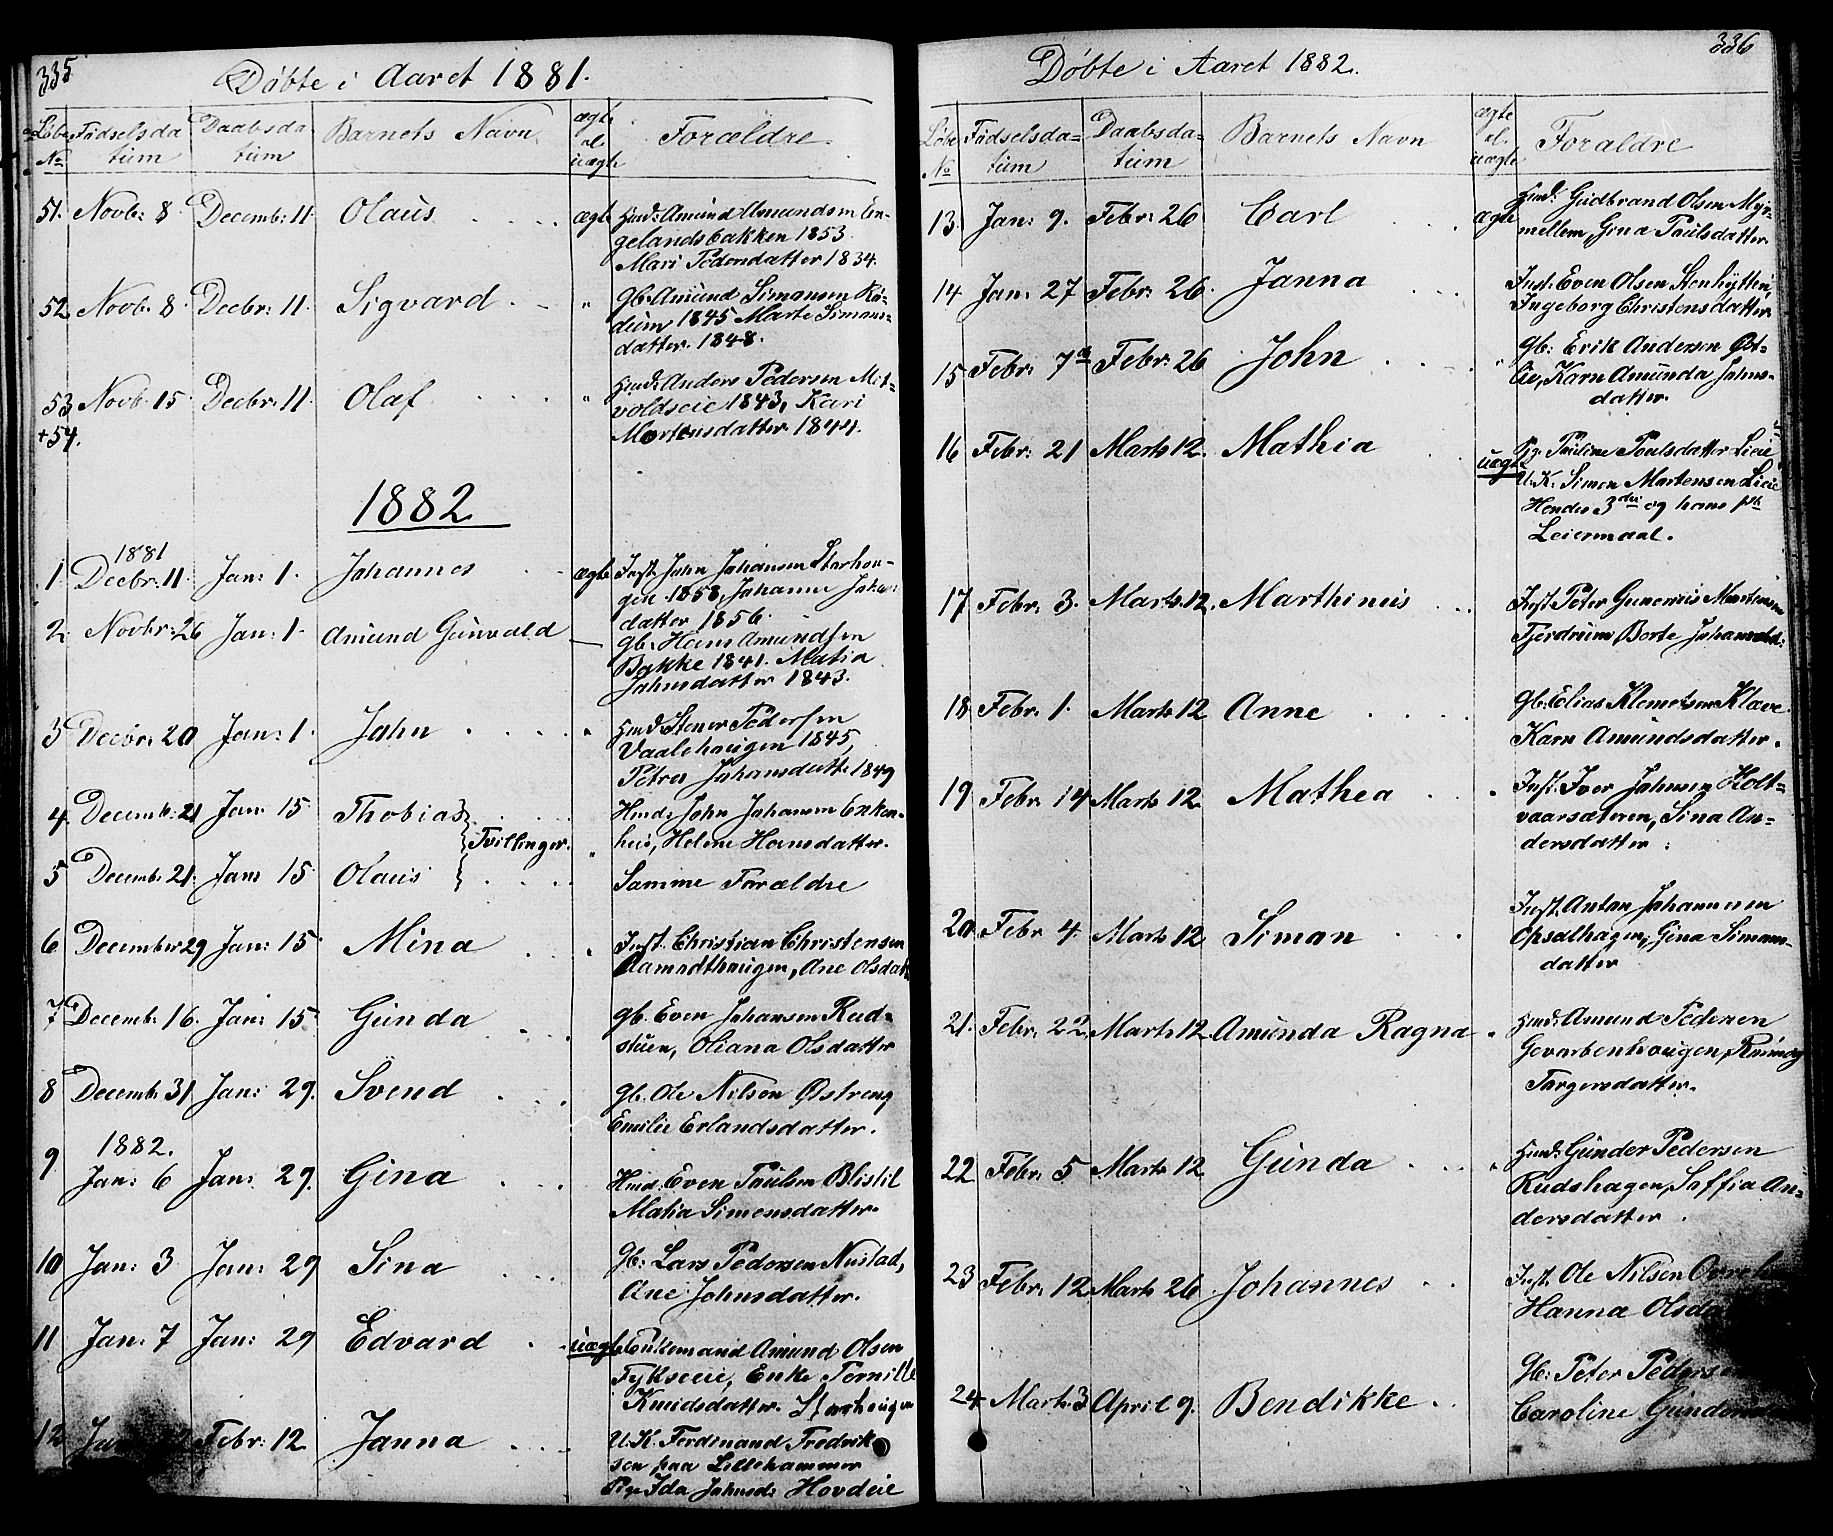 335
Døbte i Aaret 1881.
Løbe Fødselsda Daabsda- Barnets Navn ægte Forældre.
№ tum tum el uægte
51. Novb: 8. Decemb: 11. Olaus ægte Husm: Amund Amundsen En-
gelandsbakken 1853.
Mari Pedersdatter 1834.
52 Novb: 8. Decbr: 11. Sigvard " Gb. Amund Simensen Rø-
dum 1845 Marte Simens-
datter. 1848.
53 Novb. 15 Decbr: 11. Olaf " Husm: Anders Pedersen Mel-
voldseie 1843, Kari
+54. Mortensdatter 1844.
1882
1881
1. Decbr: 11. Jan: 1. Johannes ægte Inst. John Johansen Storhou-
gen 1858, Johanne Johns-
datter 1856.
2. Novbr: 26 Jan: 1. Amund Gunvald Gb: Hans Amundsen
Bakke 1841. Matia
Johnsdatter 1843.
3 Decbr: 20 Jan: 1. John " Husm: Stener Pedersen
Vaalehaugen 1845,
Petrea Johansdatt: 1849
4. Decemb: 21 Jan: 15 Thobias Husm: John Johansen Enken-
Tvillinger.
hus, Helene Hansdatter.
5 Decemb: 21. Jan: 15. Olaus Samme Forældre
6 December 29 Jan: 15. Mina Inst. Christian Christensen
Aamodthaugen, Ane Olsdat:
7 Decemb: 16. Jan: 15. Gunda gb. Even Johansen Rud-
stuen, Oliana Olsdatter
8 Decemb: 31 Jan: 29. Svend gb. Ole Nilsen Østreng
Emilie Erlandsdatter.
1882.
9 Jan: 6 Jan: 29. Gina Husm: Even Paulsen Blistil
Matia Simensdatter.
10 Jan: 3 Jan: 29 Sina Gb: Lars Pedersen Nustad,
Ane Johnsdatter.
11 Jan: 7 Jan: 29 Edvard uægte Enkemand Amund Olsen
Fykseeie, Enke Pernille
Knudsdatter. Storhaugen
12 Jan: Febr: 12 Janna U.K. Ferdinand Fredrik-
sen paa Lillehammer
Pige Ida Johnsd: Hovdeie
336
Døbte i Aaret 1882.
Løbe Fødselsda- Daabsda- Barnets Navn ægte Forældre
№ tum tum el uægte
13. Jan: 9. Febr: 26 Carl ægte Husm: Gudbrand Olsen Myr-
mellem, Gina Paulsdatter
14. Jan: 27 Febr: 26. Janna Inst. Even Olsen Stenhytten,
Ingeborg Christensdatter.
15 Febr: 7de Febr: 26 John " Gb: Erik Andersen Øst-
lie, Karn Amunda Johns-
datter.
16 Febr: 21 Marts 12. Mathia uægte Pg. Pauline Poulsdatter Lieie
U.K. Simen Martensen Lieie
Hendes 3die og hans 1ste
Leiermaal.
17. Febr: 3. Marts 12. Marthinus Inst. Peter Gunerius Martinsen
Fjerdrum Borte Johannesd:
18. Febr. 1. Marts 12 Anne Gb. Elias Klemetsen Klæve.
Karn Amundsdatter.
19 Febr. 14 Marts 12. Mathea " Inst. Iver Johnsen Holt-
vaarsæteren, Sina An-
dersdatter.
20. Febr. 4. Marts 12 Simon Inst. Anton Johannesen
Opsalhagen, Gina Simens-
datter
21. Febr. 22. Marts 12. Amunda Ragna " Husm: Amund Pedersen
Gevarbenhaugen, Runnog
Torgersdatter.
22 Febr. 5 Marts 12 Gunda " Husm: Gunder Pedersen
Rudshagen, Saffia An-
dersdatter.
23 Febr. 12 Marts 26 Johannes Inst. Ole Nilsen
Hanna
24. Marts 3 April 9. Bendikke Gb: Peter
Caroline